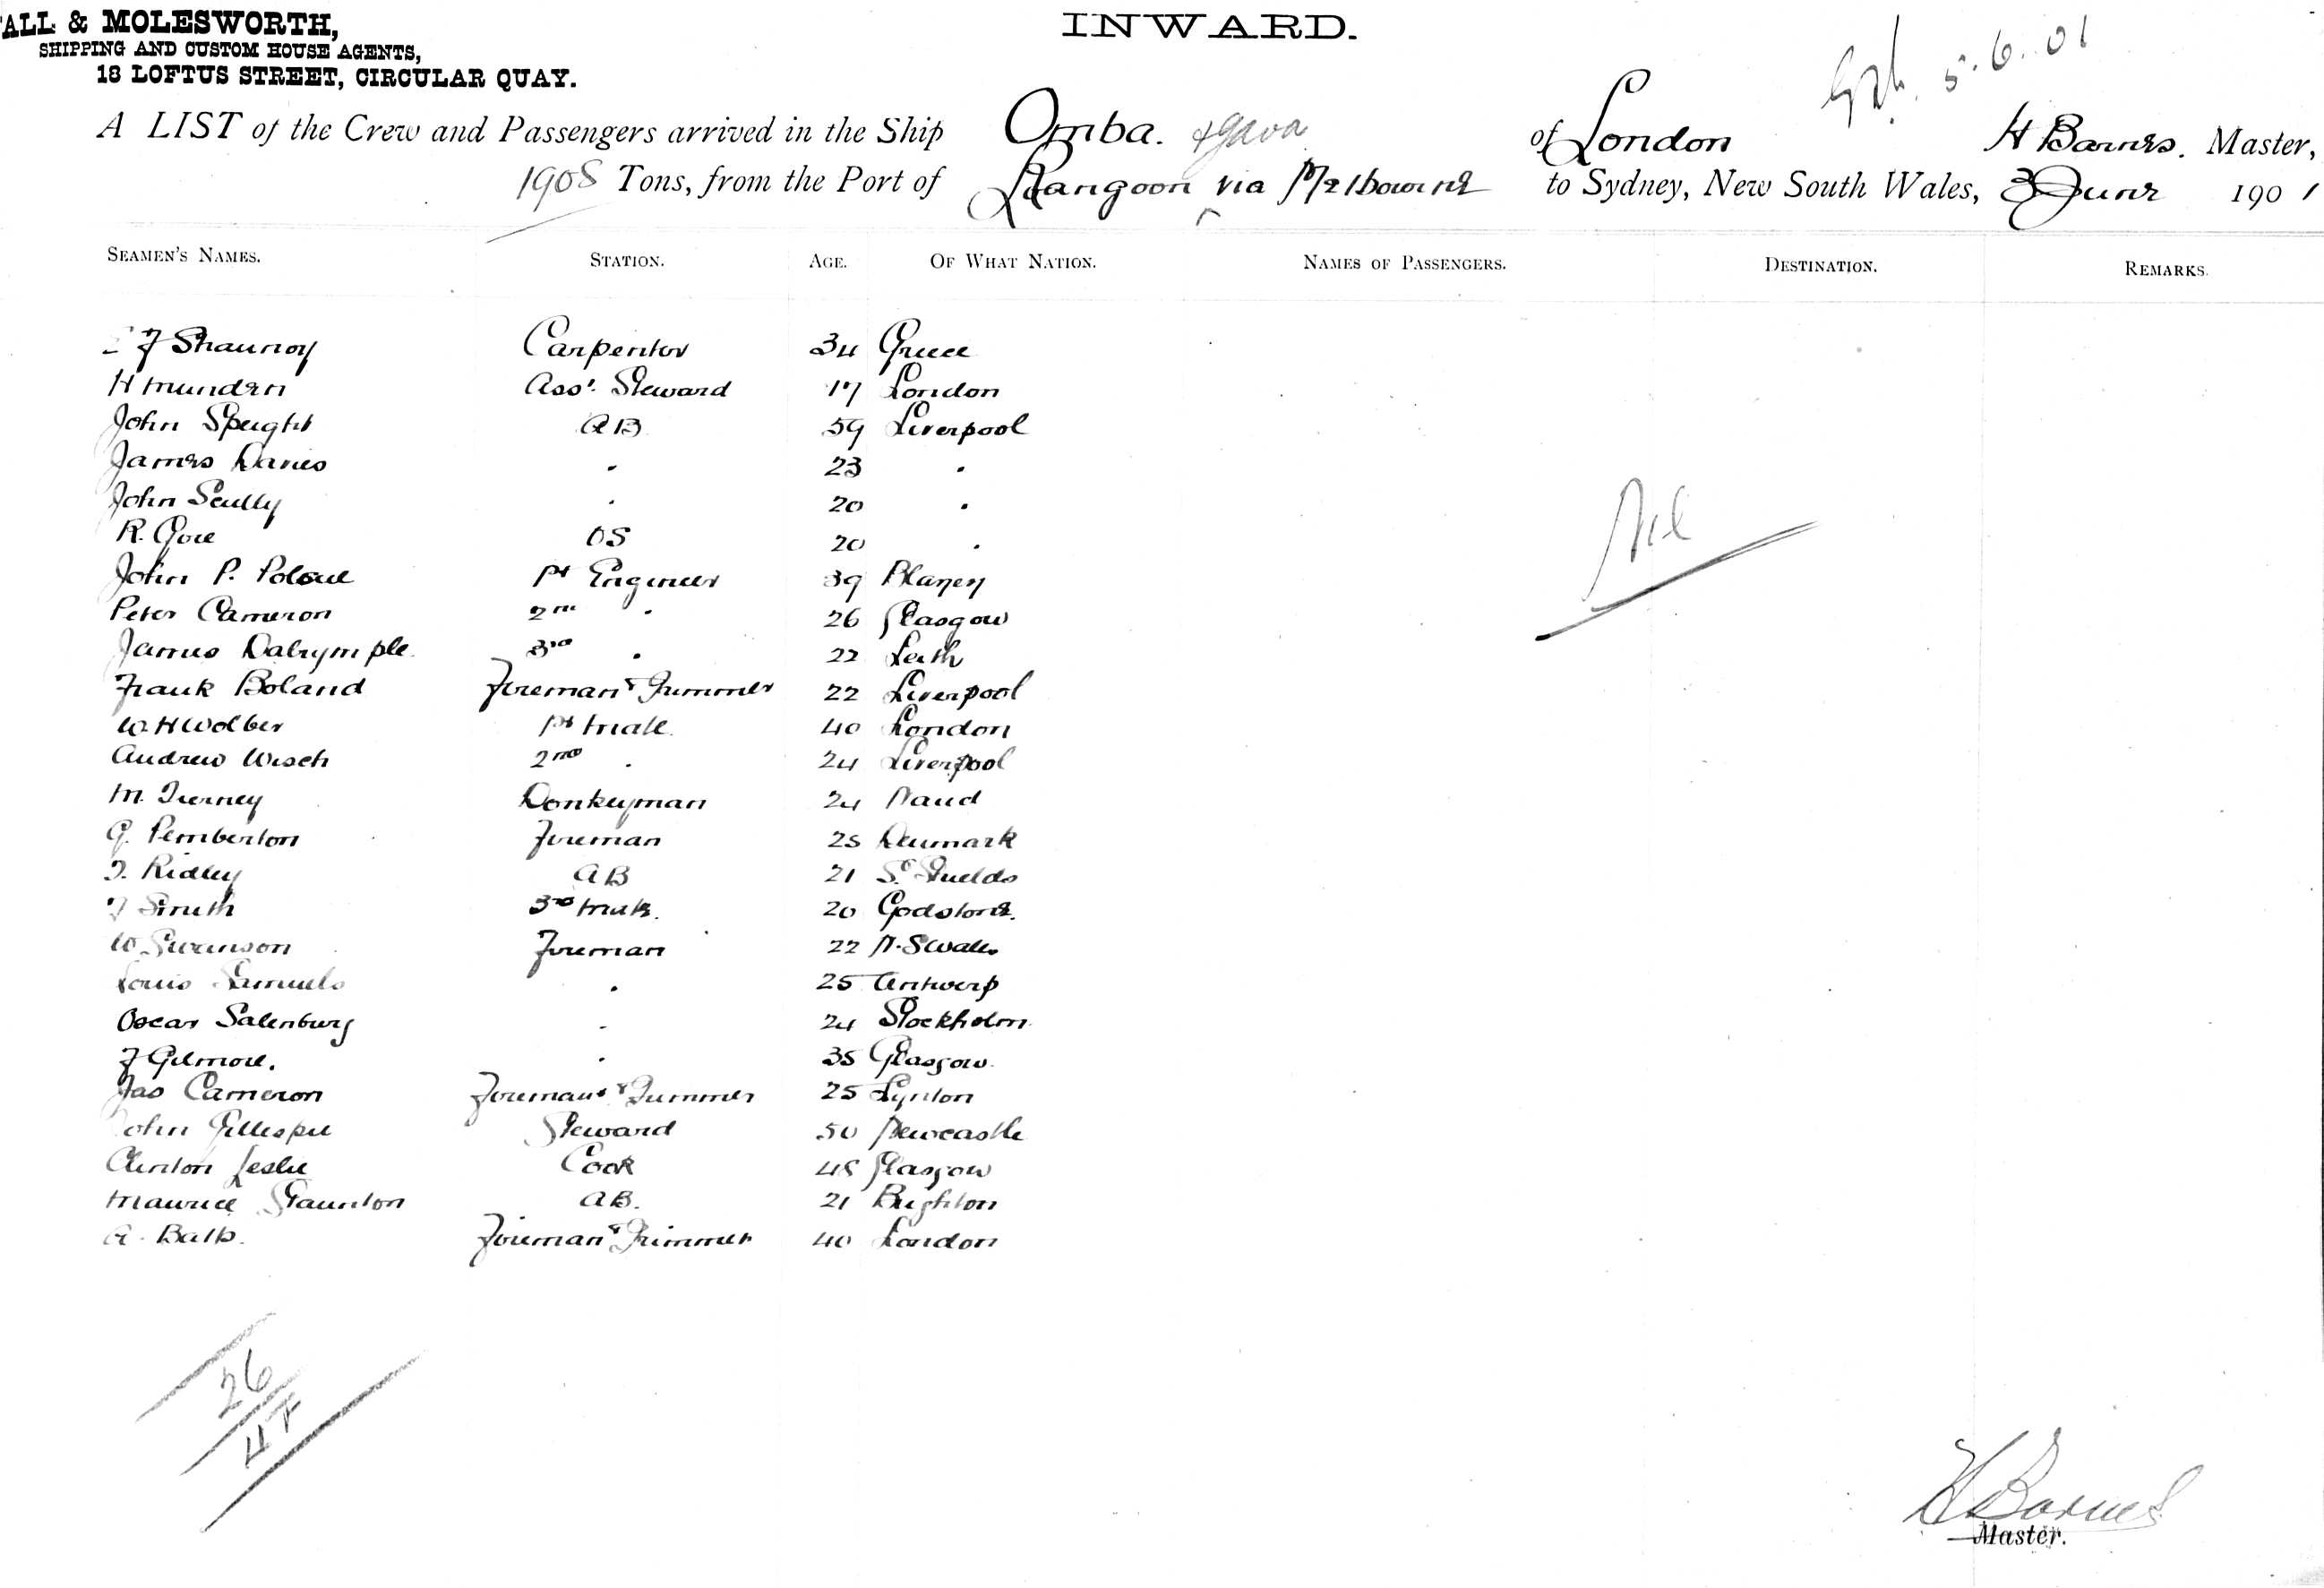 ALL & MOLESWORTH,
SHIPPING AND CUSTOM HOUSE AGENTS,
18 LOFTUS STREET, CIRCULAR QUAY.
INWARD.
5.6.01
A LIST of the Crew and Passengers arrived in the Ship Omba. & Java of London H Barnes. Master,
1908 Tons, from the Port of Rangoon via Melbourne to Sydney, New South Wales, 3 June 1901
SEAMEN'S NAMES. STATION. AGE. OF WHAT NATION. NAMES OF PASSENGERS. DESTINATION. REMARKS.
Carpenter 34 Greece
H Munden Asst. Steward 17 London
John Speight AB 59 Liverpool
James Davies " 23 "
John Scully " 20 "
R. Gore OS 20 "
John P. 1st Engineer 39 Blaney
Peter Cameron 2nd " 26 Glasgow
James Dalrymple 3rd " 22 Leith
Frank Boland Fireman & Trimmer 22 Liverpool
W. H Wolber 1st Mate 40 London
Andrew Wisch 2nd " 24 Liverpool
M. Tierney Donkeyman 24
G. Pemberton Fireman 25 Denmark
T. Ridley AB 21 So. Shields
Smith 3rd Mate. 20 Godstone.
W. Swanson Fireman 22 N. S Wales
Louis Samuels " 25 Antwerp
Oscar Salenburg " 24 Stockholm
F Gilmore. " 35 Glasgow.
Jas Cameron Fireman & Trimmer 25 Lynton
John Gillespie Steward 50 Newcastle
Clinton Leslie Cook 48 Glasgow
Maurice Staunton AB. 21 Brighton
A. Fireman & Trimmer 40 London
Nil
26
H Barnes
Master.